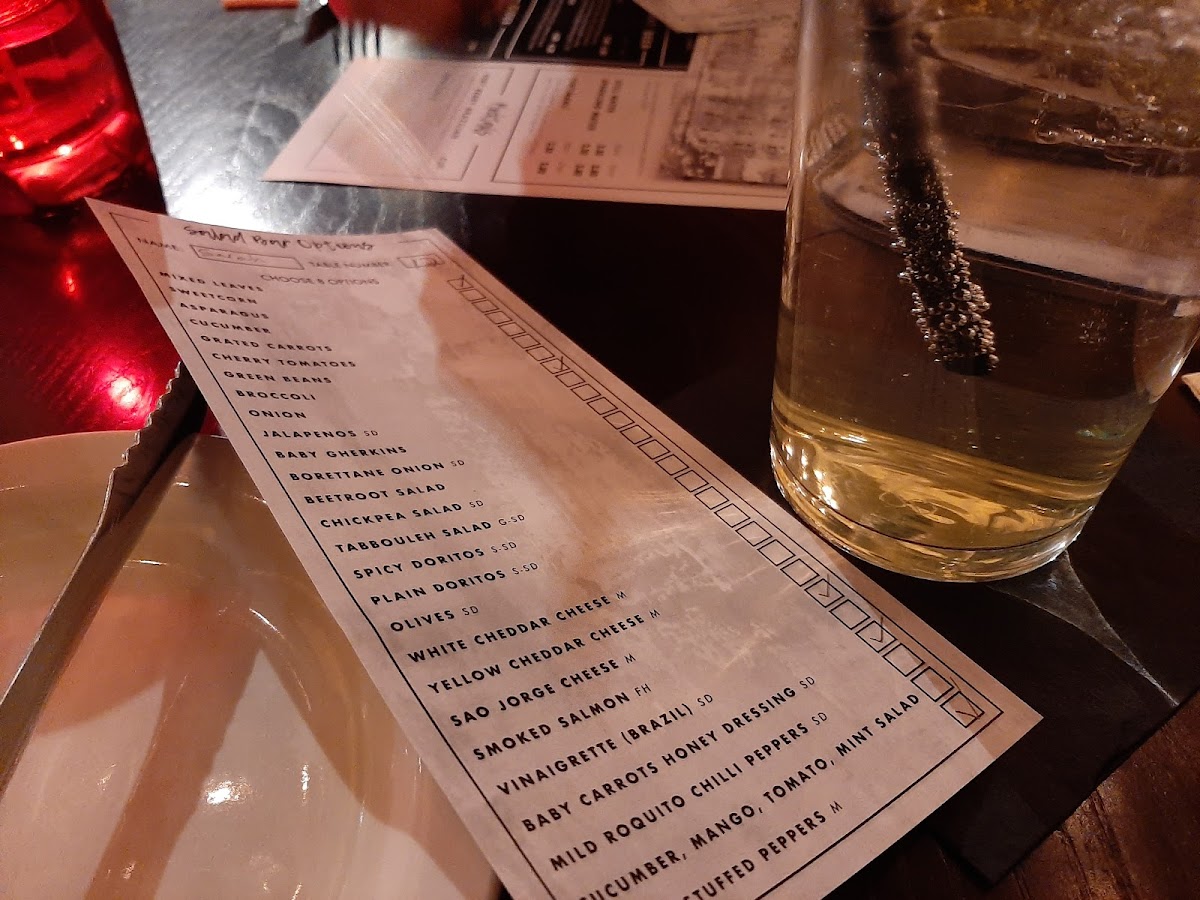 Salad Bar Options
NAME: TABLE NUMBER:
CHOOSE 8 OPTIONS
MIXED LEAVES
SWEETCORN
ASPARAGUS
CUCUMBER
GRATED CARROTS
CHERRY TOMATOES
GREEN BEANS
BROCCOLI
ONION
JALAPENOS SD
BABY GHERKINS
BORETTANE ONION SD
BEETROOT SALAD
CHICKPEA SALAD SD
TABBOULEH SALAD G-SD
SPICY DORITOS S-SD
PLAIN DORITOS S-SD
OLIVES SD
WHITE CHEDDAR CHEESE M
YELLOW CHEDDAR CHEESE M
SAO JORGE CHEESE M
SMOKED SALMON FH
VINAIGRETTE (BRAZIL) SD
BABY CARROTS HONEY DRESSING SD
MILD ROQUITO CHILLI PEPPERS SD
CUCUMBER, MANGO, TOMATO, MINT SALAD
STUFFED PEPPERS M